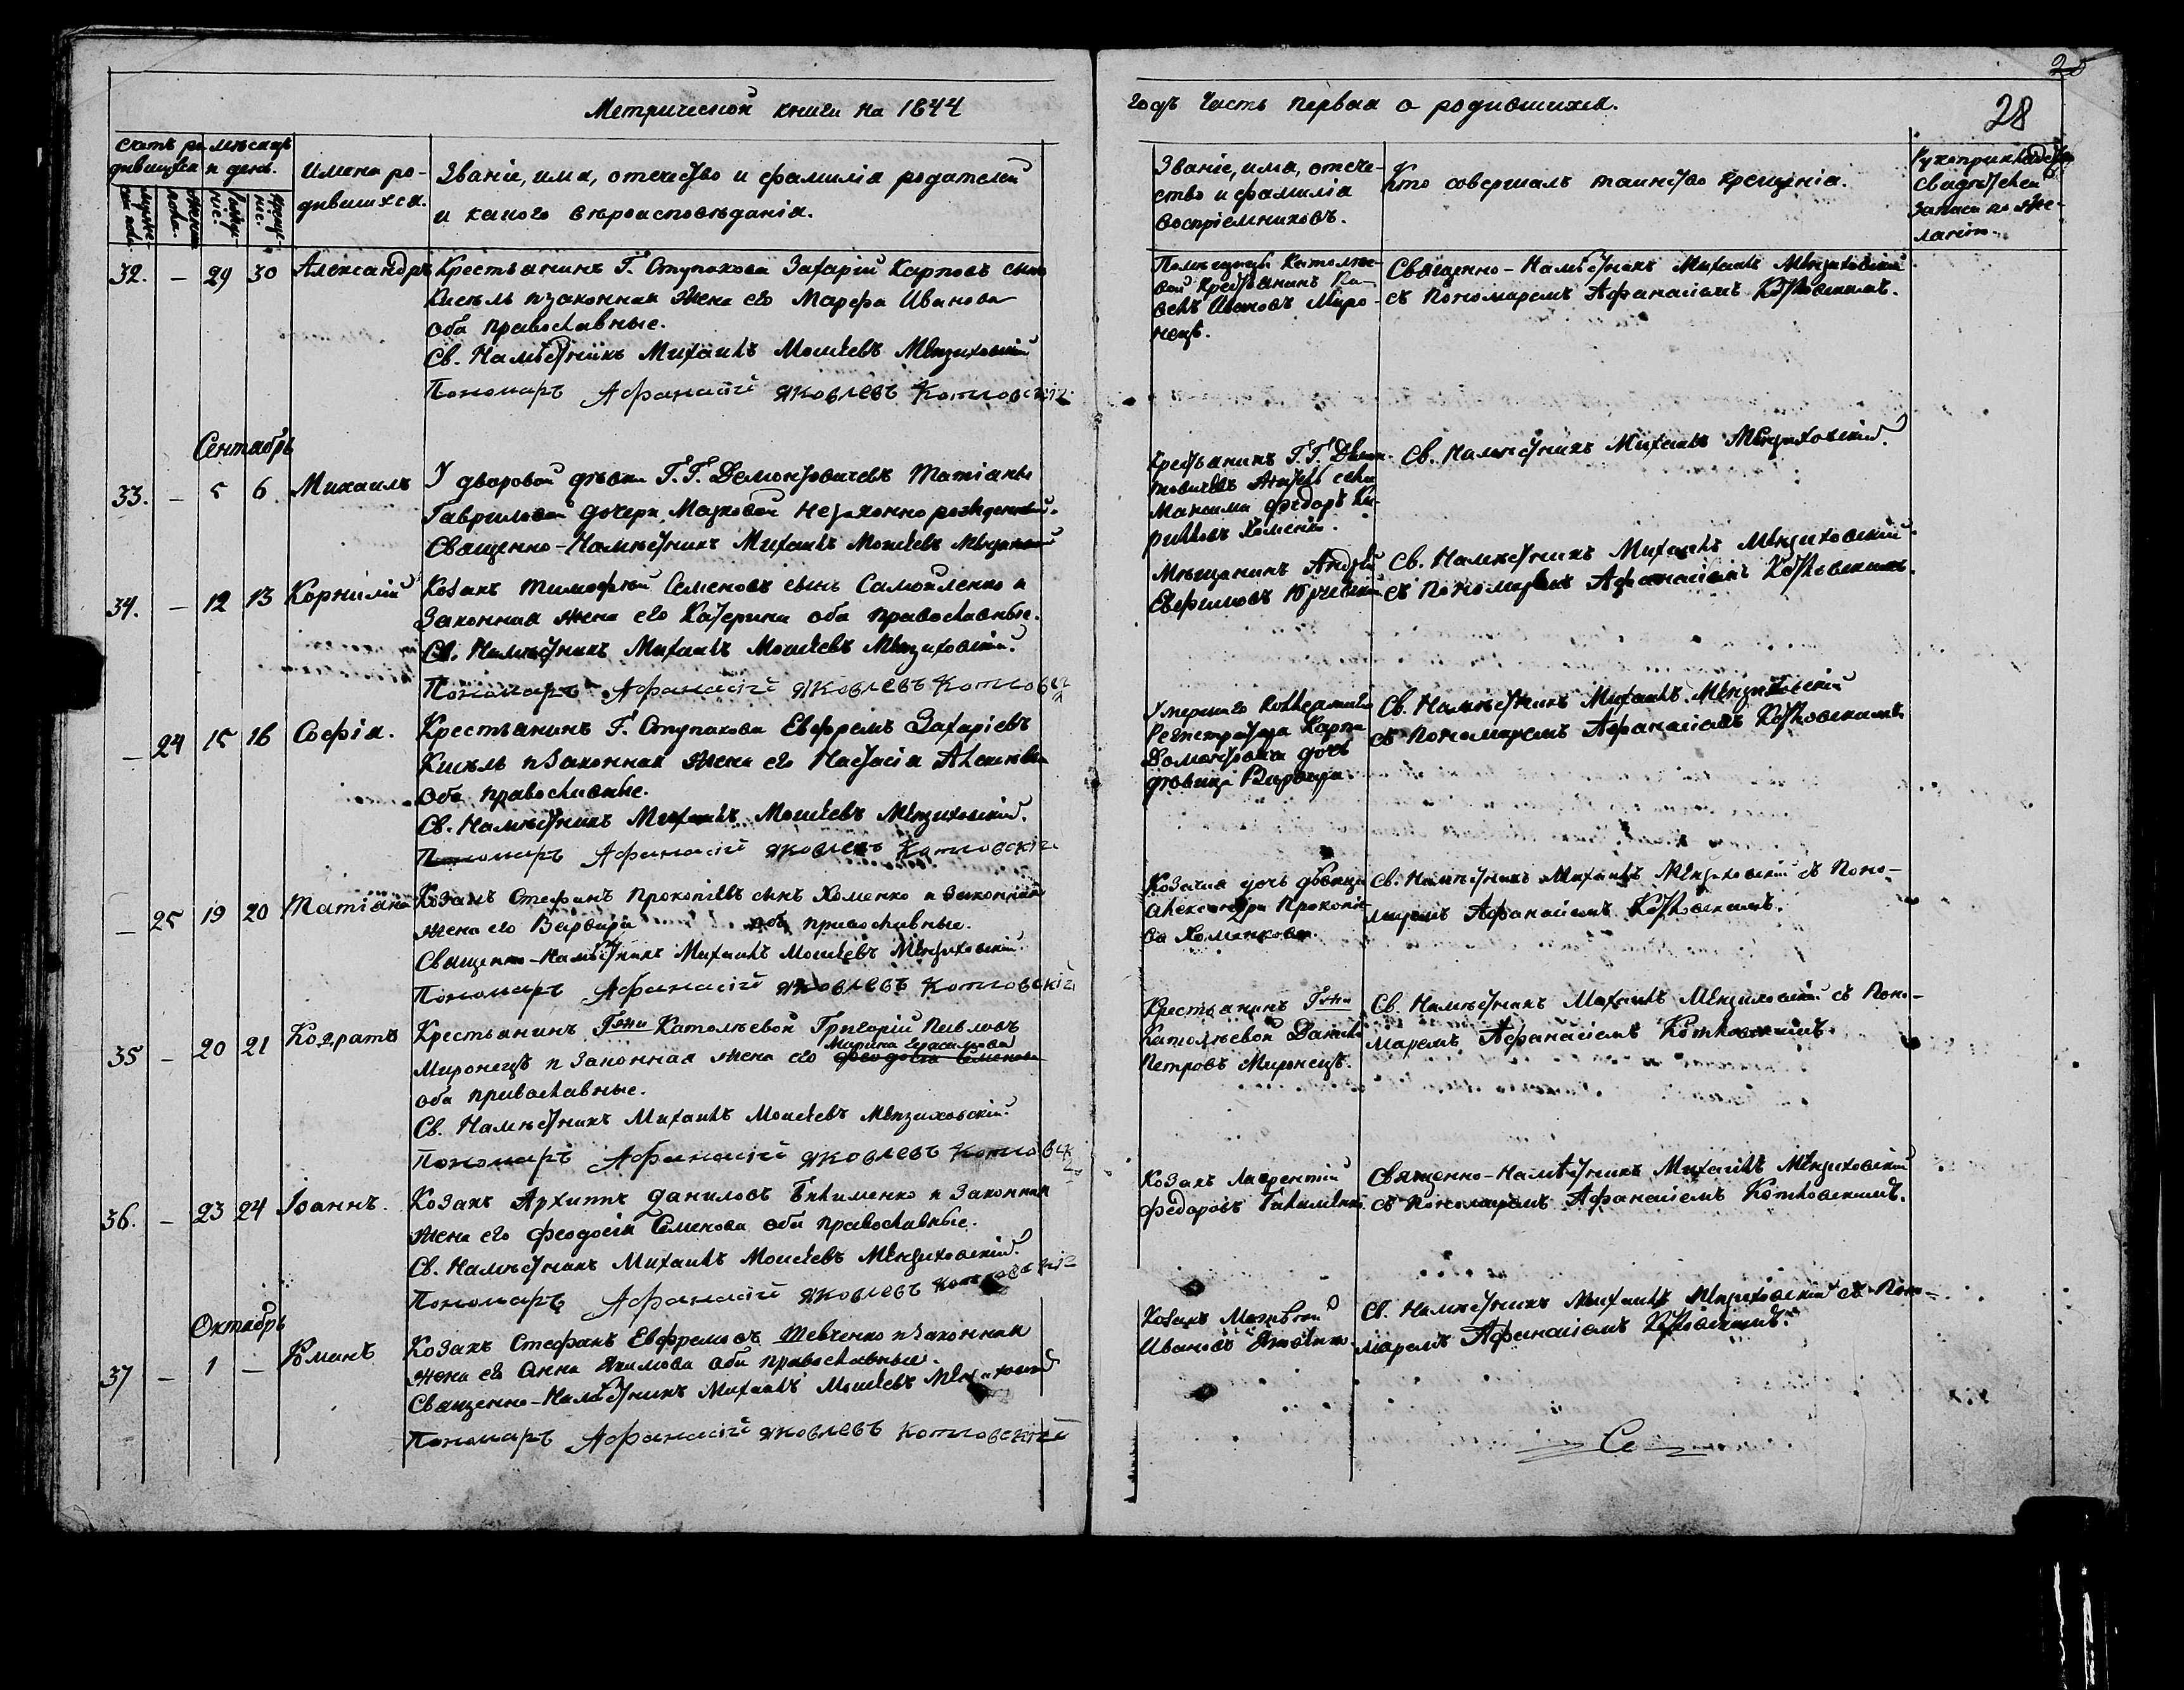 Метрической книги на 1844
годъ часть первая о родившихся.
28
счетъ ро-
дившихся
мѣсяцъ
и день.
Имена ро-
дившихся.
Званіе, имя, отечество и фамилія родителей
и какого вѣроисповѣданія.
Званіе, имя, отече-
ство и фамилія
воспріемниковъ.
Кто совершалъ таинство крещенія.
Рукоприкладство
свидѣтелей
записи по же-
ланію.
32. – 29 30 Александръ
Крестьянинъ Г. Ступакова Захарій Карповъ сынъ
Кисѣль и законная жена его Марфа Иванова
оба православные.
Св. Намѣстникъ Михаилъ Моисѣевъ
Пономарь Афанасій Яковлевъ Котловскій
Помѣщицы
вой крестьянинъ
Ивановъ Миро-
нецъ.
Священно-Намѣстникъ Михаилъ
съ пономаремъ Афанасіемъ Котловскимъ.
Сентябрь
33. – 5 6 Михаилъ
У дворовой дѣвки Г.Г. Домонтовичевъ Татіаны
Гавриловой дочери незаконно рожденный.
Священно-Намѣстникъ Михаилъ Моисѣевъ
Крестьянинъ Г.Г. Домон-
товичевъ
Федоръ Ки-
рилловъ Хоменко.
Св. Намѣстникъ Михаилъ
34. – 12 13 Корнилій
Козакъ Тимофѣй Семеновъ сынъ Самойленко и
законная жена его Катерина оба православные.
Св. Намѣстникъ Михаилъ Моисѣевъ
Пономарь Афанасій Яковлевъ Котловскі
Мѣщанинъ Андрѣй
Евфимовъ
Св. Намѣстникъ Михаилъ
съ пономаремъ Афанасіемъ Котловскимъ.
– 24 15 16 Софія.
Крестьянинъ Г. Ступакова Евфремъ Захаріевъ
Кисѣль и законная жена его Настасія Алексѣева
оба православные.
Св. Намѣстникъ Михаилъ Моисѣевъ
Пономарь Афанасій Яковлевъ Котловскій
Умершаго Коллежскаго
Регистратора Карпа
Домонтовича дочь
дѣвица Варвара.
Св. Намѣстникъ Михаилъ
съ пономаремъ Афанасіемъ Котловскимъ
– 25 19 20 Татіана
Козакъ Стефанъ Прокопіевъ сынъ Хоменко и законная
жена его Варвара оба православные.
Священно-Намѣстникъ Михаилъ Моисѣевъ
Пономарь Афанасій Яковлевъ Котловскій
Козачая дочь дѣвица
Александра Прокопіе-
ва Хоменкова.
Св. Намѣстникъ Михаилъ съ Поно-
маремъ Афанасіемъ Котловскимъ.
35 – 20 21 Кодратъ
Крестьянинъ Гжи Григорій Павловъ
Марина Герасимова
Миронецъ и законная жена его Феодосія Семенова
оба православные.
Св. Намѣстникъ Михаилъ Моисѣевъ
Пономарь Афанасій Яковлевъ Котловск
Крестьянинъ Гжи
Данило
Петровъ Миронецъ.
Св. Намѣстникъ Михаилъ съ Поно-
маремъ Афанасіемъ Котловскимъ.
36. – 23 24 Іоаннъ.
Козакъ Архипъ Даниловъ и законная
жена его Феодосія Семенова оба православные.
Св. Намѣстникъ Михаилъ Моисѣевъ
Пономарь Афанасій Яковлевъ Котловскій
Козакъ Лаврентій
Федоровъ
Священно-Намѣстникъ Михаилъ
съ пономаремъ Афанасіемъ Котловскимъ.
Октябрь
37 – 1 – Романъ
Козакъ Стефанъ Евфремовъ Шевченко и законная
жена его Анна Якимова оба православные.
Священно-Намѣстникъ Михаилъ Моисѣевъ
Пономарь Афанасій Яковлевъ Котловскій
Козакъ Матвѣй
Ивановъ
Св. Намѣстникъ Михаилъ съ Поно-
маремъ Афанасіемъ Котловскимъ.